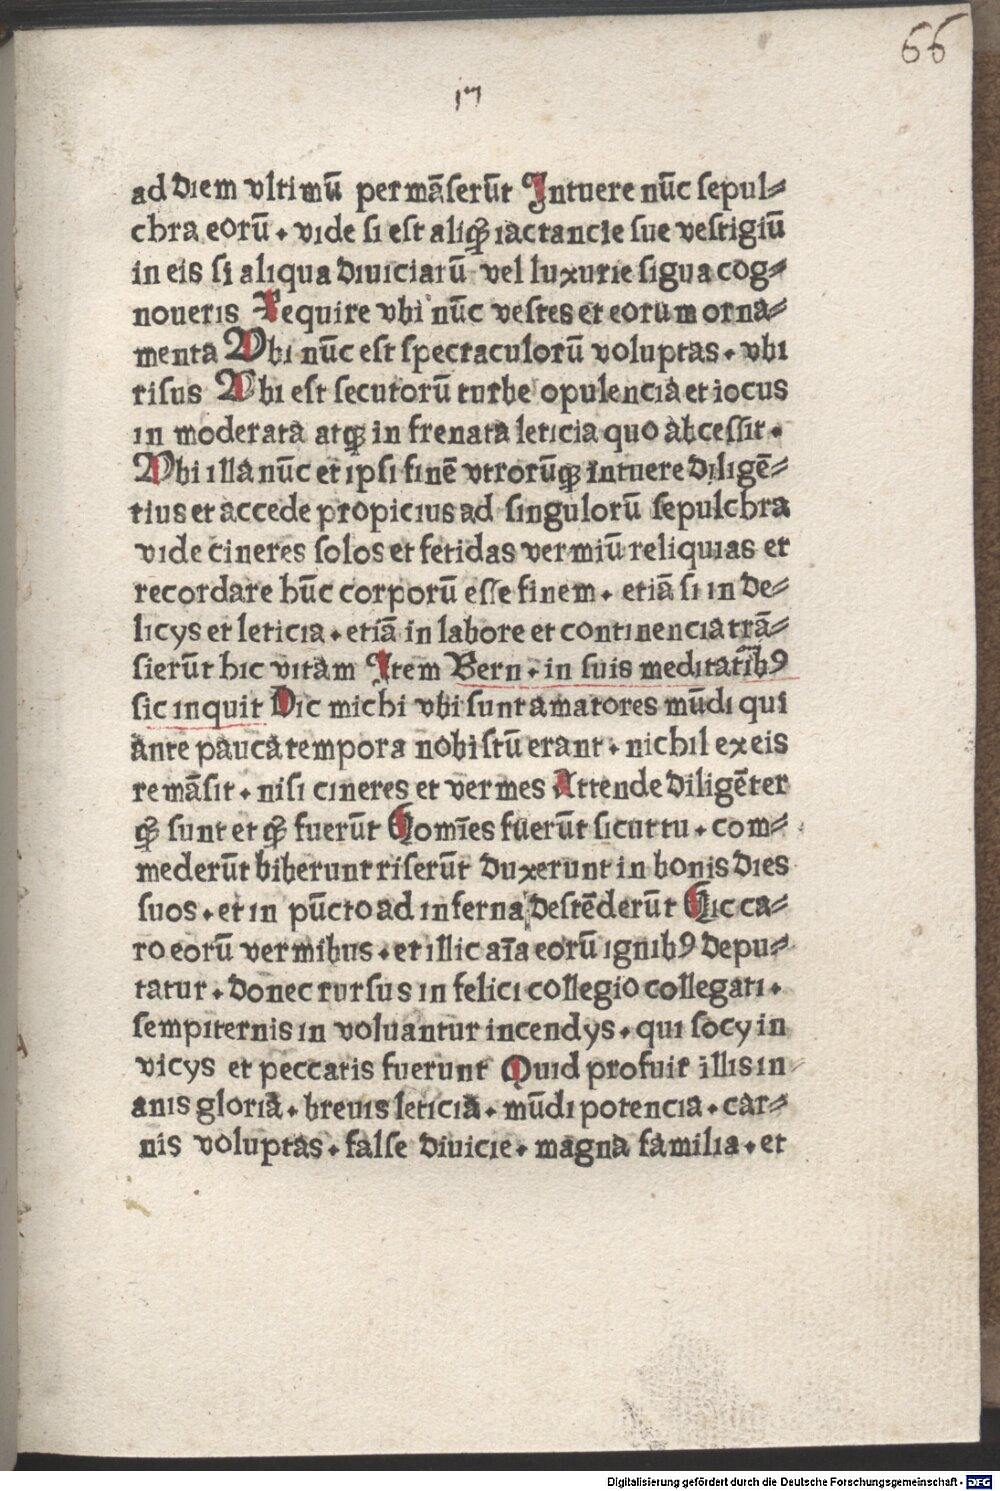 66
17
ad diem vltimū permāserūt Intuere nūc sepul⸗
chra eorū . vide si est aliq̄ȝ iactancie sue vestigiū
in eis si aliqua diuiciarū vel luxurie signa cog⸗
noueris Require vbi nūc vestes et eorum orna⸗
menta Vbi nūc est spectaculorū voluptas . vbi
risus Vbi est secutorū turbe opulencia et iocus
in moderata atqȝ in frenata leticia quo abcessit .
Vbi illa nūc et ipsi finē vtrorūqȝ intuere diligē⸗
tius et accede propicius ad singulorū sepulchra
vide cineres solos et fetidas vermiū reliquias et
recordare hūc corporū esse finem . etiā si in de⸗
licys et leticia . etiā in labore et continencia trā⸗
sierūt hic vitam Item Bern . in suis meditatiībꝰ
sic inquit Dic michi vbi sunt amatores mūdi qui
ante pauca tempora nobistū erant . nichil ex eis
remāsit . nisi cineres et vermes Attende diligēter
q̄ȝ sunt et q̄ȝ fuerūt Homīes fuerūt sicut tu . com⸗
mederūt biberunt riserūt duxerunt in bonis dies
suos . et in pūcto ad inferna destēderūt Hic ca⸗
ro eorū vermibus . et illic aīa eorū ignibꝰ depu⸗
tatur . donec rursus in felici collegio collegati .
sempiternis in voluantur incendys . qui socy in
vicys et peccatis fuerunt Quid profuit illis in
anis gloria . breuis leticia . mūdi potencia . car⸗
nis voluptas . false diuicie . magna familia . et
Digitalisierung gefördert durch die Deutsche Forschungsgemeinschaft - DFG